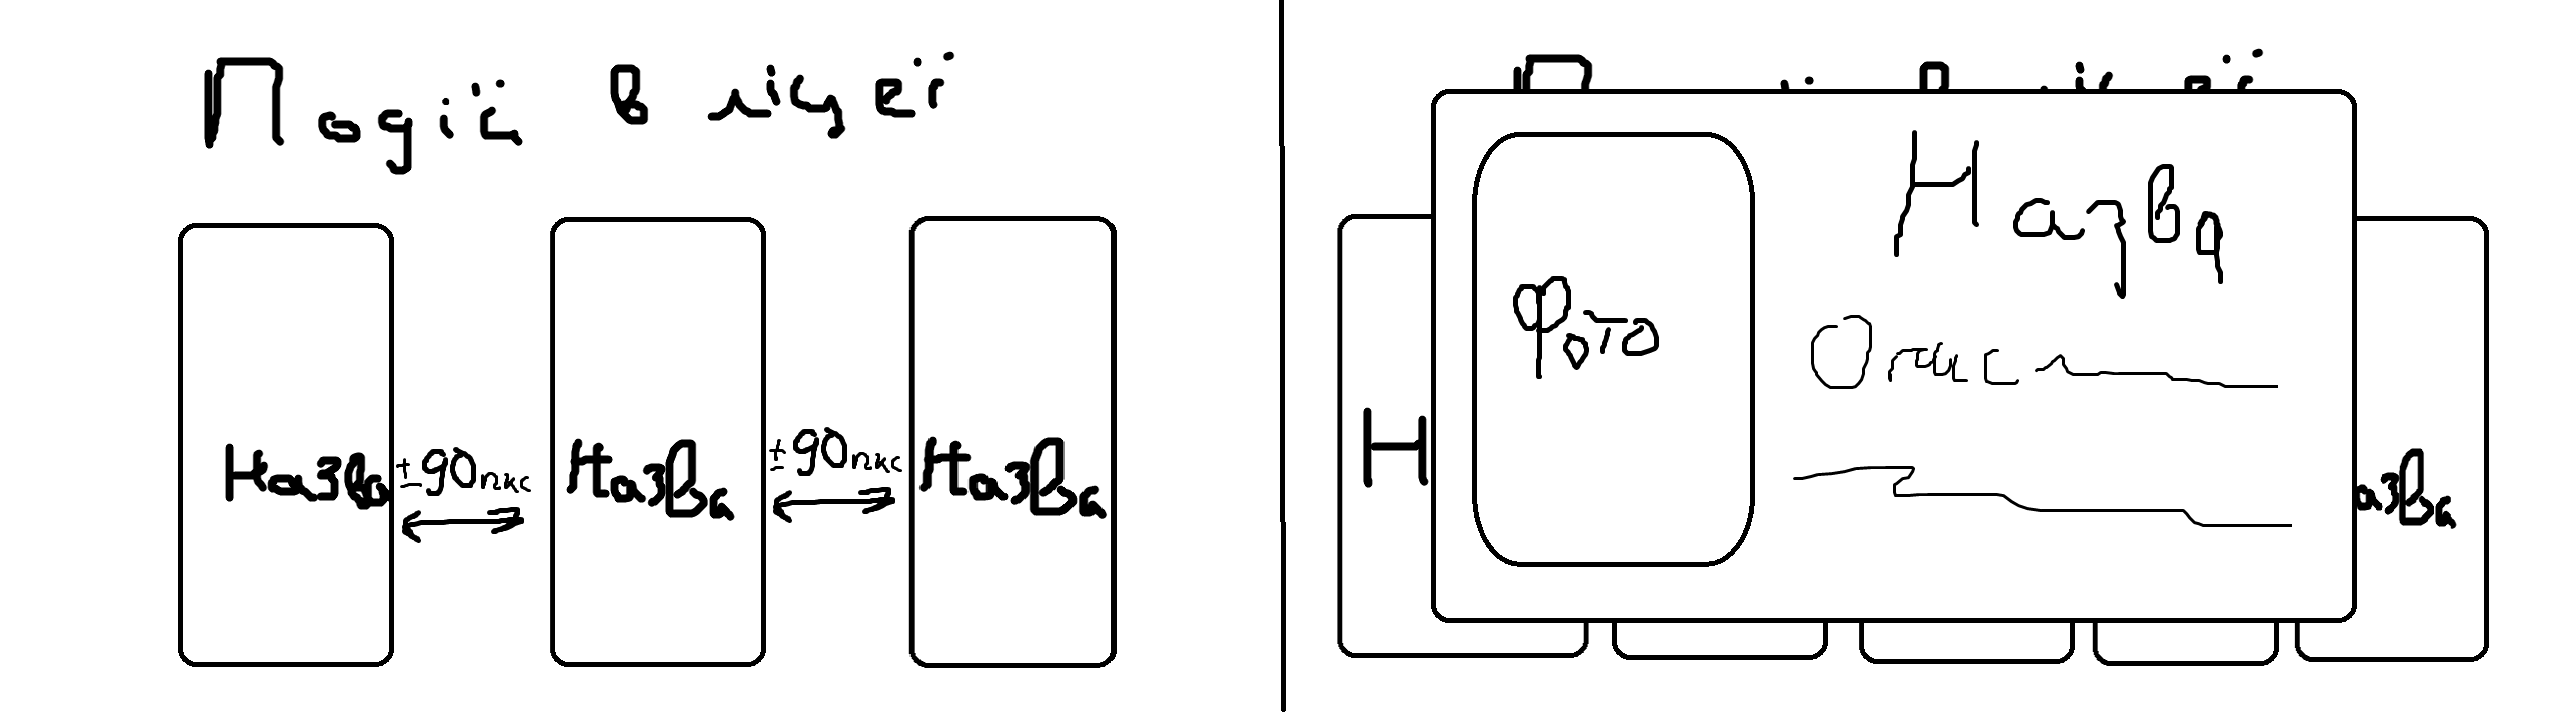 Події в ліцеї
Назва
±90пкс
Назва
±90пкс
Назва
Назва
Фото
Опис
Н
азва